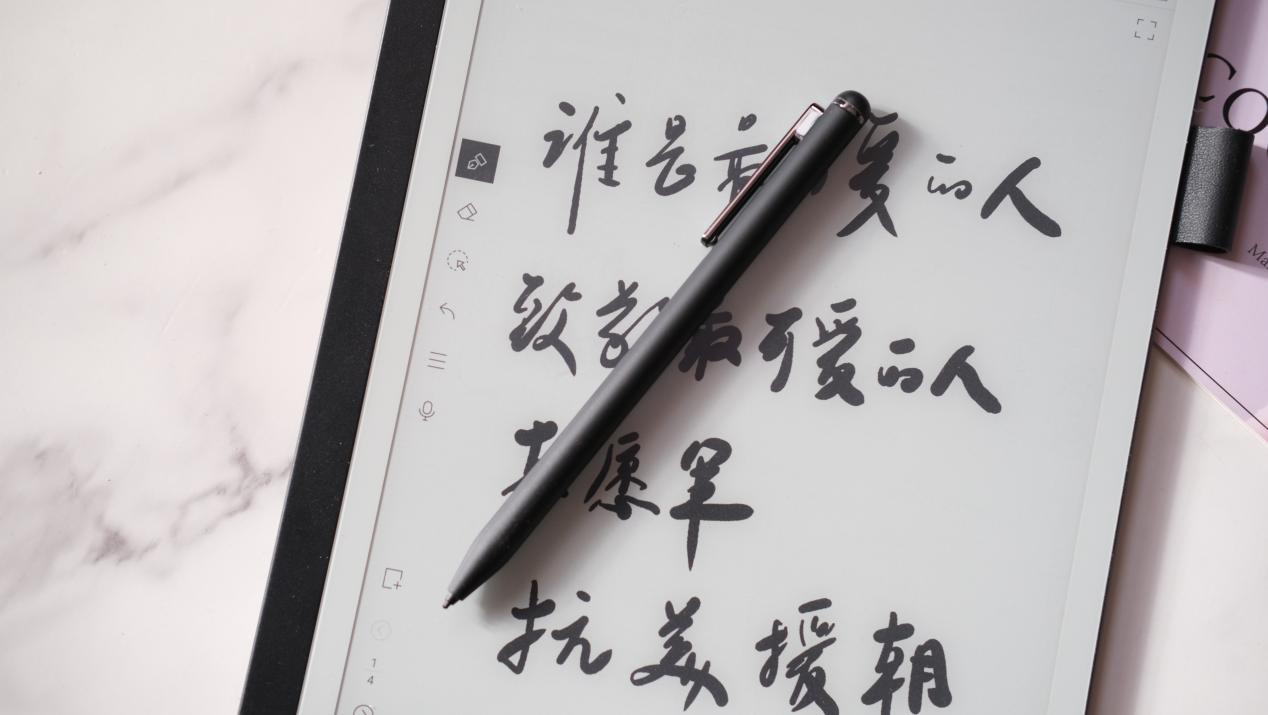 谁是最爱的人
致敬最可爱的人
愿军
抗美援朝
1
4
Co
Ma